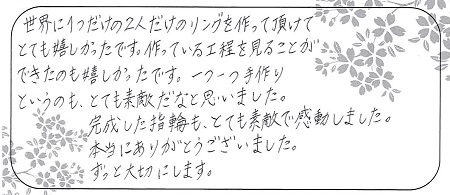 世界に1つだけの2人だけのリングを作って頂けて
とても嬉しかったです。作っている工程を見ることが
できたのも嬉しかったです。一つ一つ手作り
というのも、とても素敵だなと思いました。
完成した指輪も、とても素敵で感動しました。
本当にありがとうございました。
ずっと大切にします。